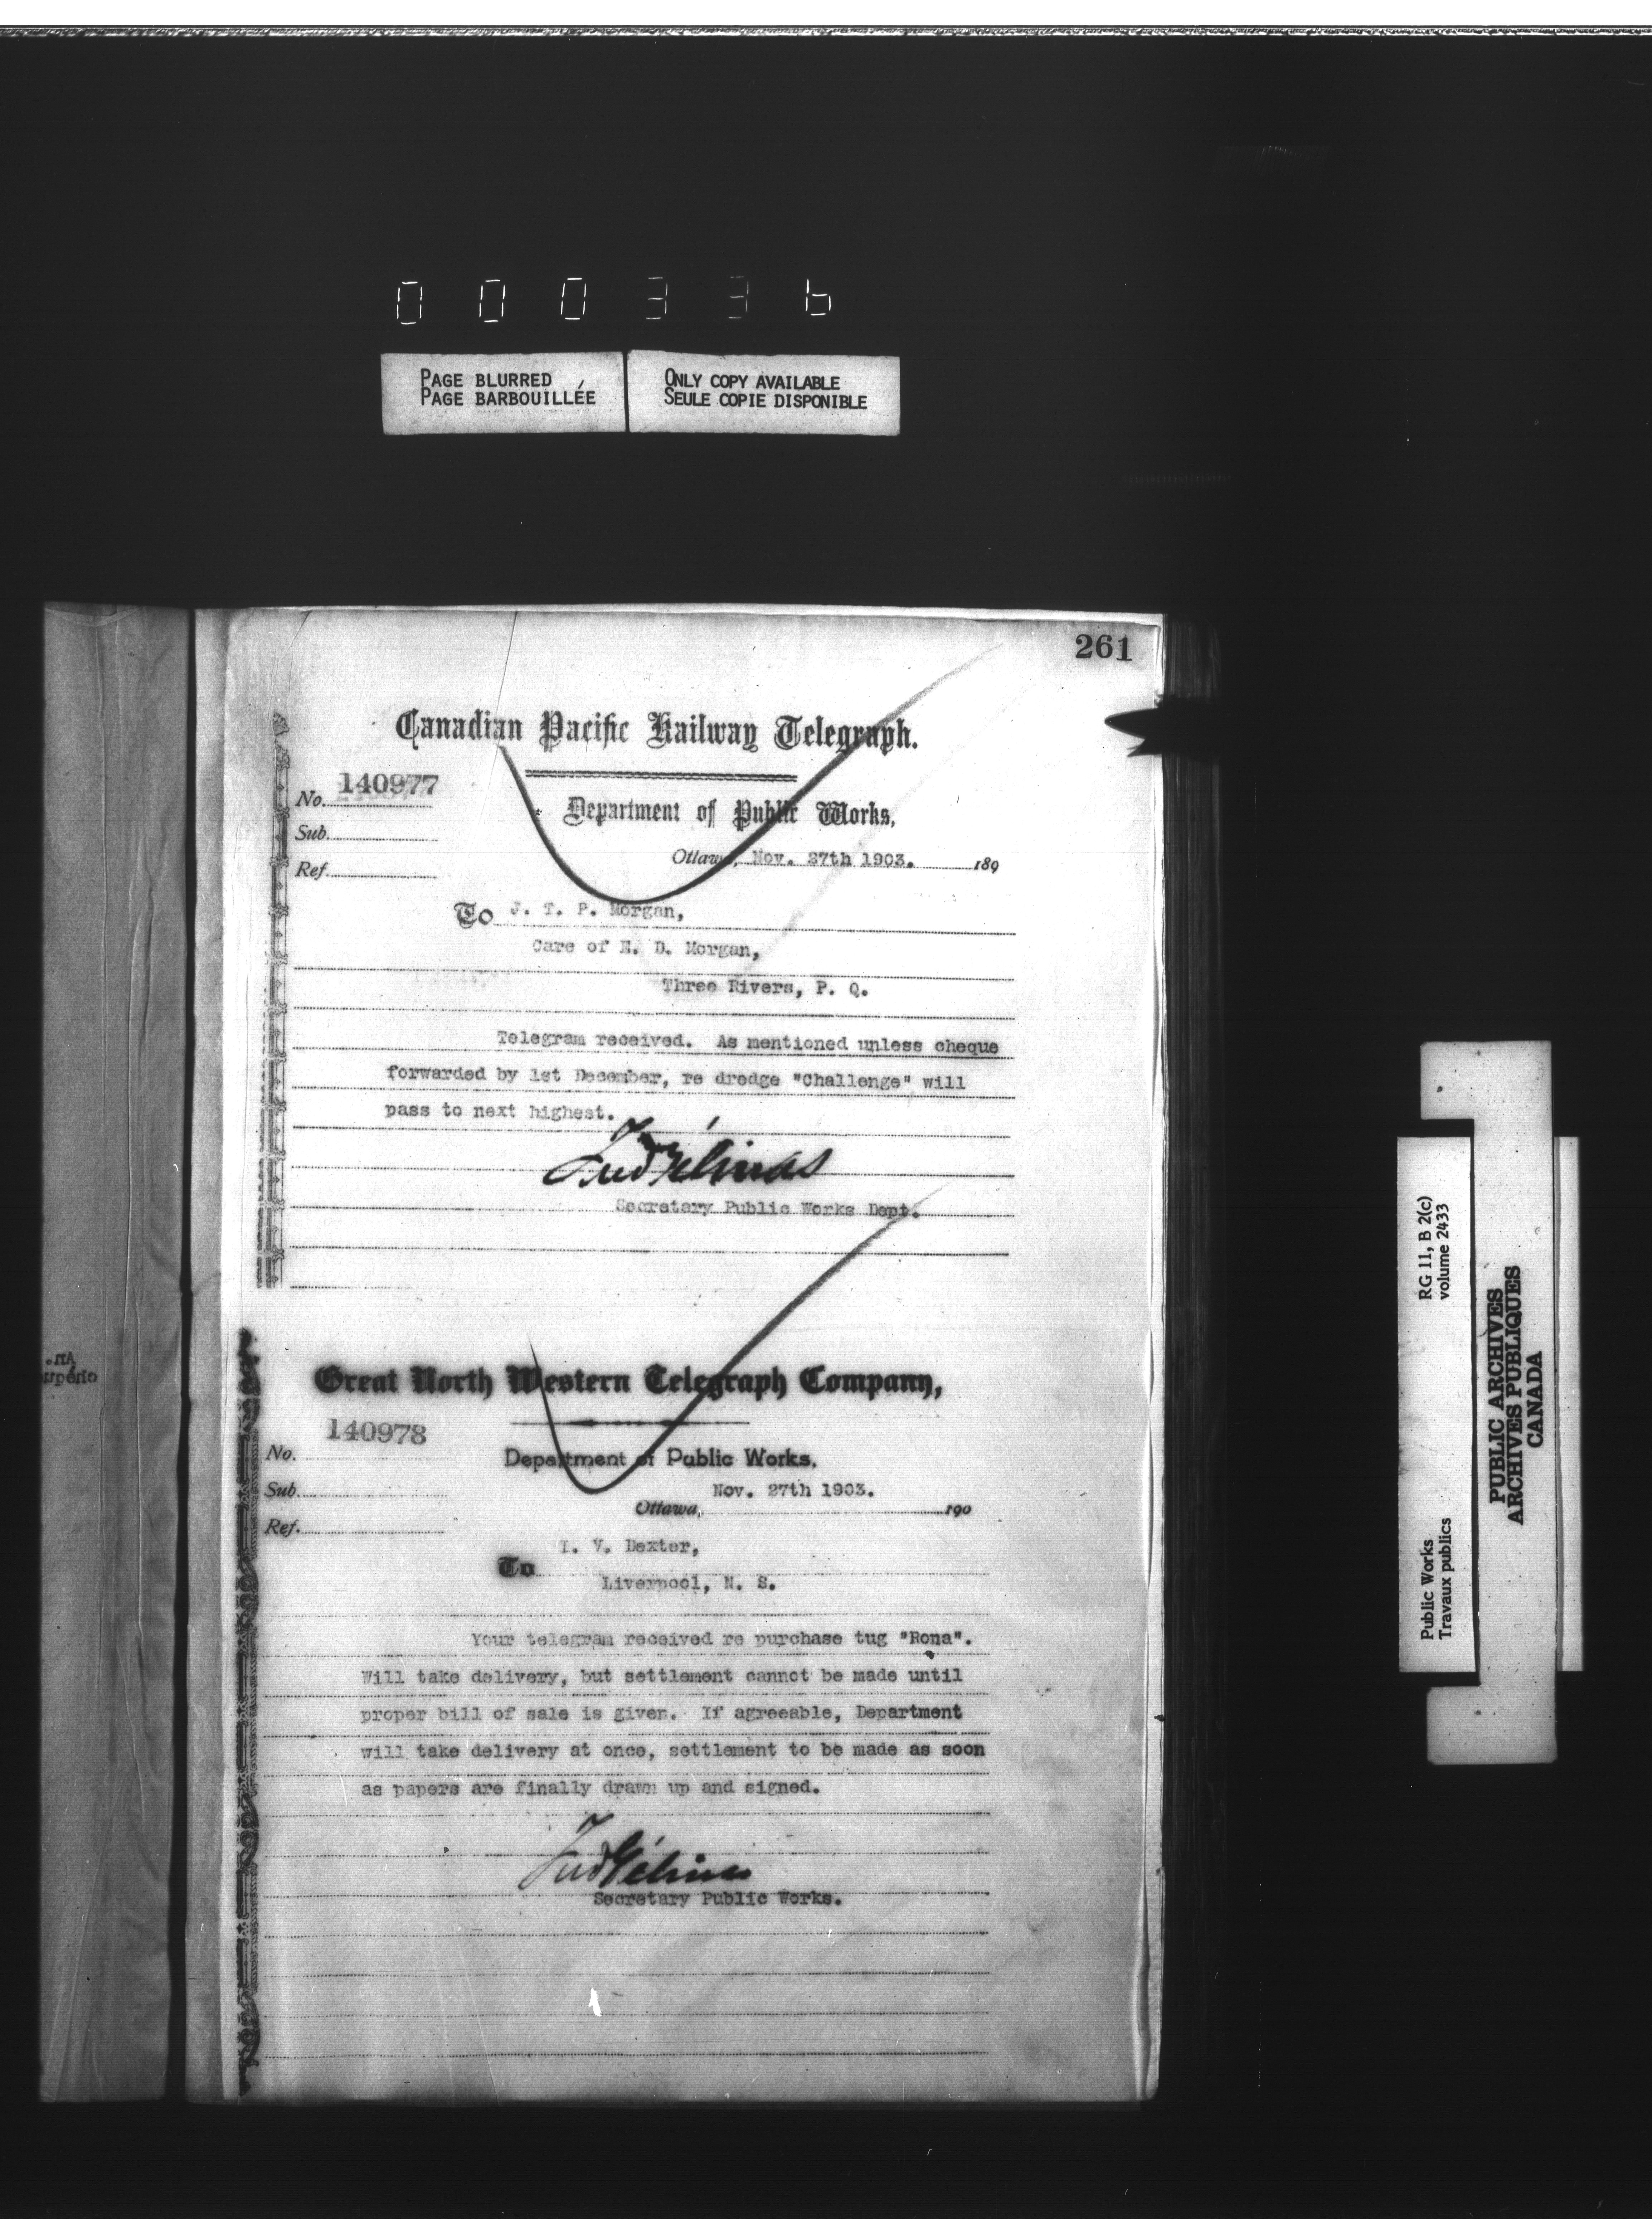 000336
PAGE BLURRED
PAGE BARBOUILLÉE
ONLY COPY AVAILABLE
SEULE COPIE DISPONIBLE
261
Canadian Pacific Railway Telegraph.
No. 140977
Department of Public Works,
Sub.
Ottawa, Nov. 27th 1903. 189
Ref.
To J. T. P. Morgan,
Care of E. D. Morgan,
Three Rivers, P. Q.
Telegram received. As mentioned unless cheque
forwarded by 1st December, re dredge "Challenge" will
pass to next highest.
Fred Gélinas
Secretary Public Works Dept.
Great North Western Telegraph Company,
140978
No.
Department of Public Works.
Sub.
Nov. 27th 1903.
Ottawa, 190
Ref.
I. V. Dexter,
To
Liverpool, N. S.
Your telegram received re purchase tug "Rona".
Will take delivery, but settlement cannot be made until
proper bill of sale is given. If agreeable, Department
will take delivery at once, settlement to be made as soon
as papers are finally drawn up and signed.
Fred Gélinas
Secretary Public Works.
Public Works
Travaux publics
RG 11, B 2(c)
volume 2433
PUBLIC ARCHIVES
ARCHIVES PUBLIQUES
CANADA